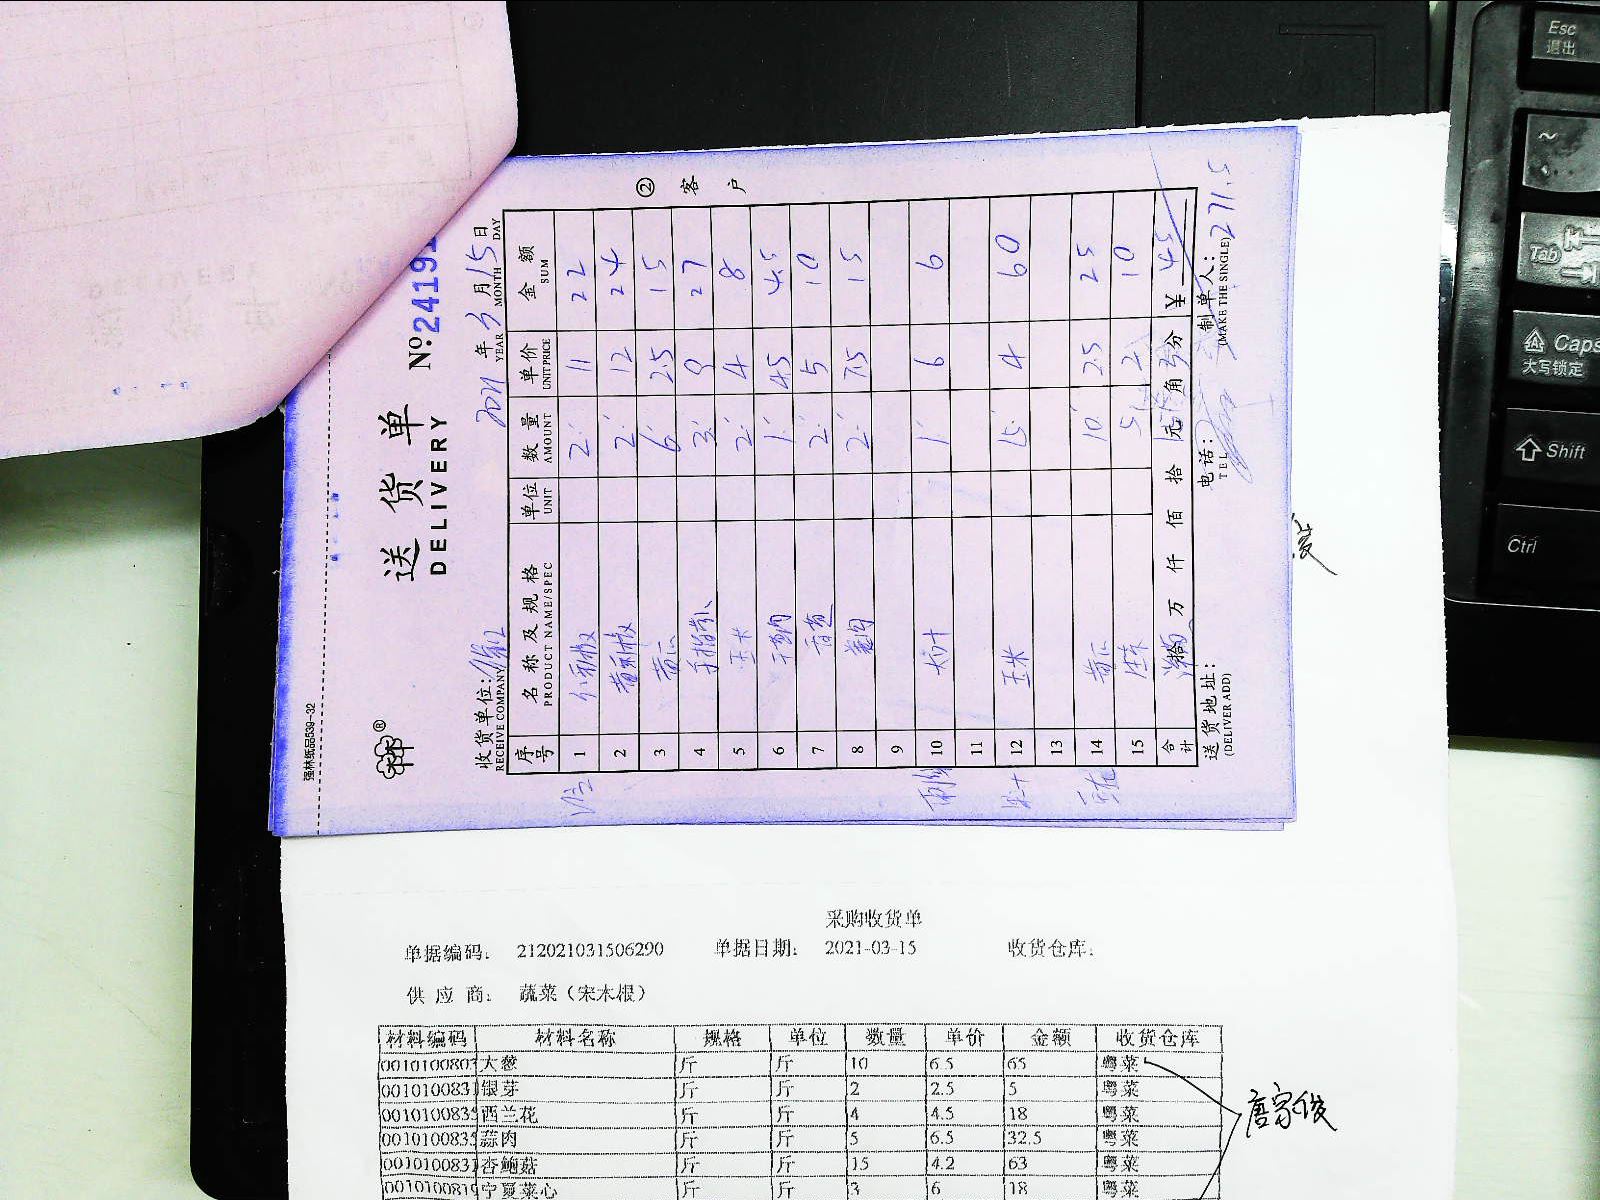 强林纸品539-32
送 货 单
DELIVERY
No:24191
收货单位:
RECEIVE COMPANY
2021 年 3 月 15 日
YEAR MONTH DAY
② 客 户
序号 名 称 及 规 格 单位 数 量 单 价 金 额
PRODUCT NAME/SPEC UNIT AMOUNT UNIT PRICE SUM
1 2 11 22
2 2 12 24
3 黄瓜 6 2.5 15
4 3 9 27
5 玉米 2 4 8
6 1 45 45
7 2 5 10
8 2 7.5 15
9
10 1 6 6
11
12 玉米 15 4 60
13
14 黄瓜 10 2.5 25
15 5 2 10
合计 拾 万 仟 佰 拾 元 角 分 ¥
271.5
送 货 地 址: 电话: 制 单 人:
(DELIVER ADD) TEL (MAKE THE SINGLE)
采购收货单
单据编码: 212021031506290 单据日期: 2021-03-15 收货仓库:
供 应 商: 蔬菜（宋木根）
材料编码 材料名称 规格 单位 数量 单价 金额 收货仓库
0010100803 大葱 斤 斤 10 6.5 65 粤菜
0010100831 银芽 斤 斤 2 2.5 5 粤菜
0010100835 西兰花 斤 斤 4 4.5 18 粤菜
0010100835 蒜肉 斤 斤 5 6.5 32.5 粤菜
0010100831 杏鲍菇 斤 斤 15 4.2 63 粤菜
0010100819 宁夏菜心 斤 斤 3 6 18 粤菜
唐家俊
Esc
退出
~
Tab
Caps
大写锁定
Shift
Ctrl